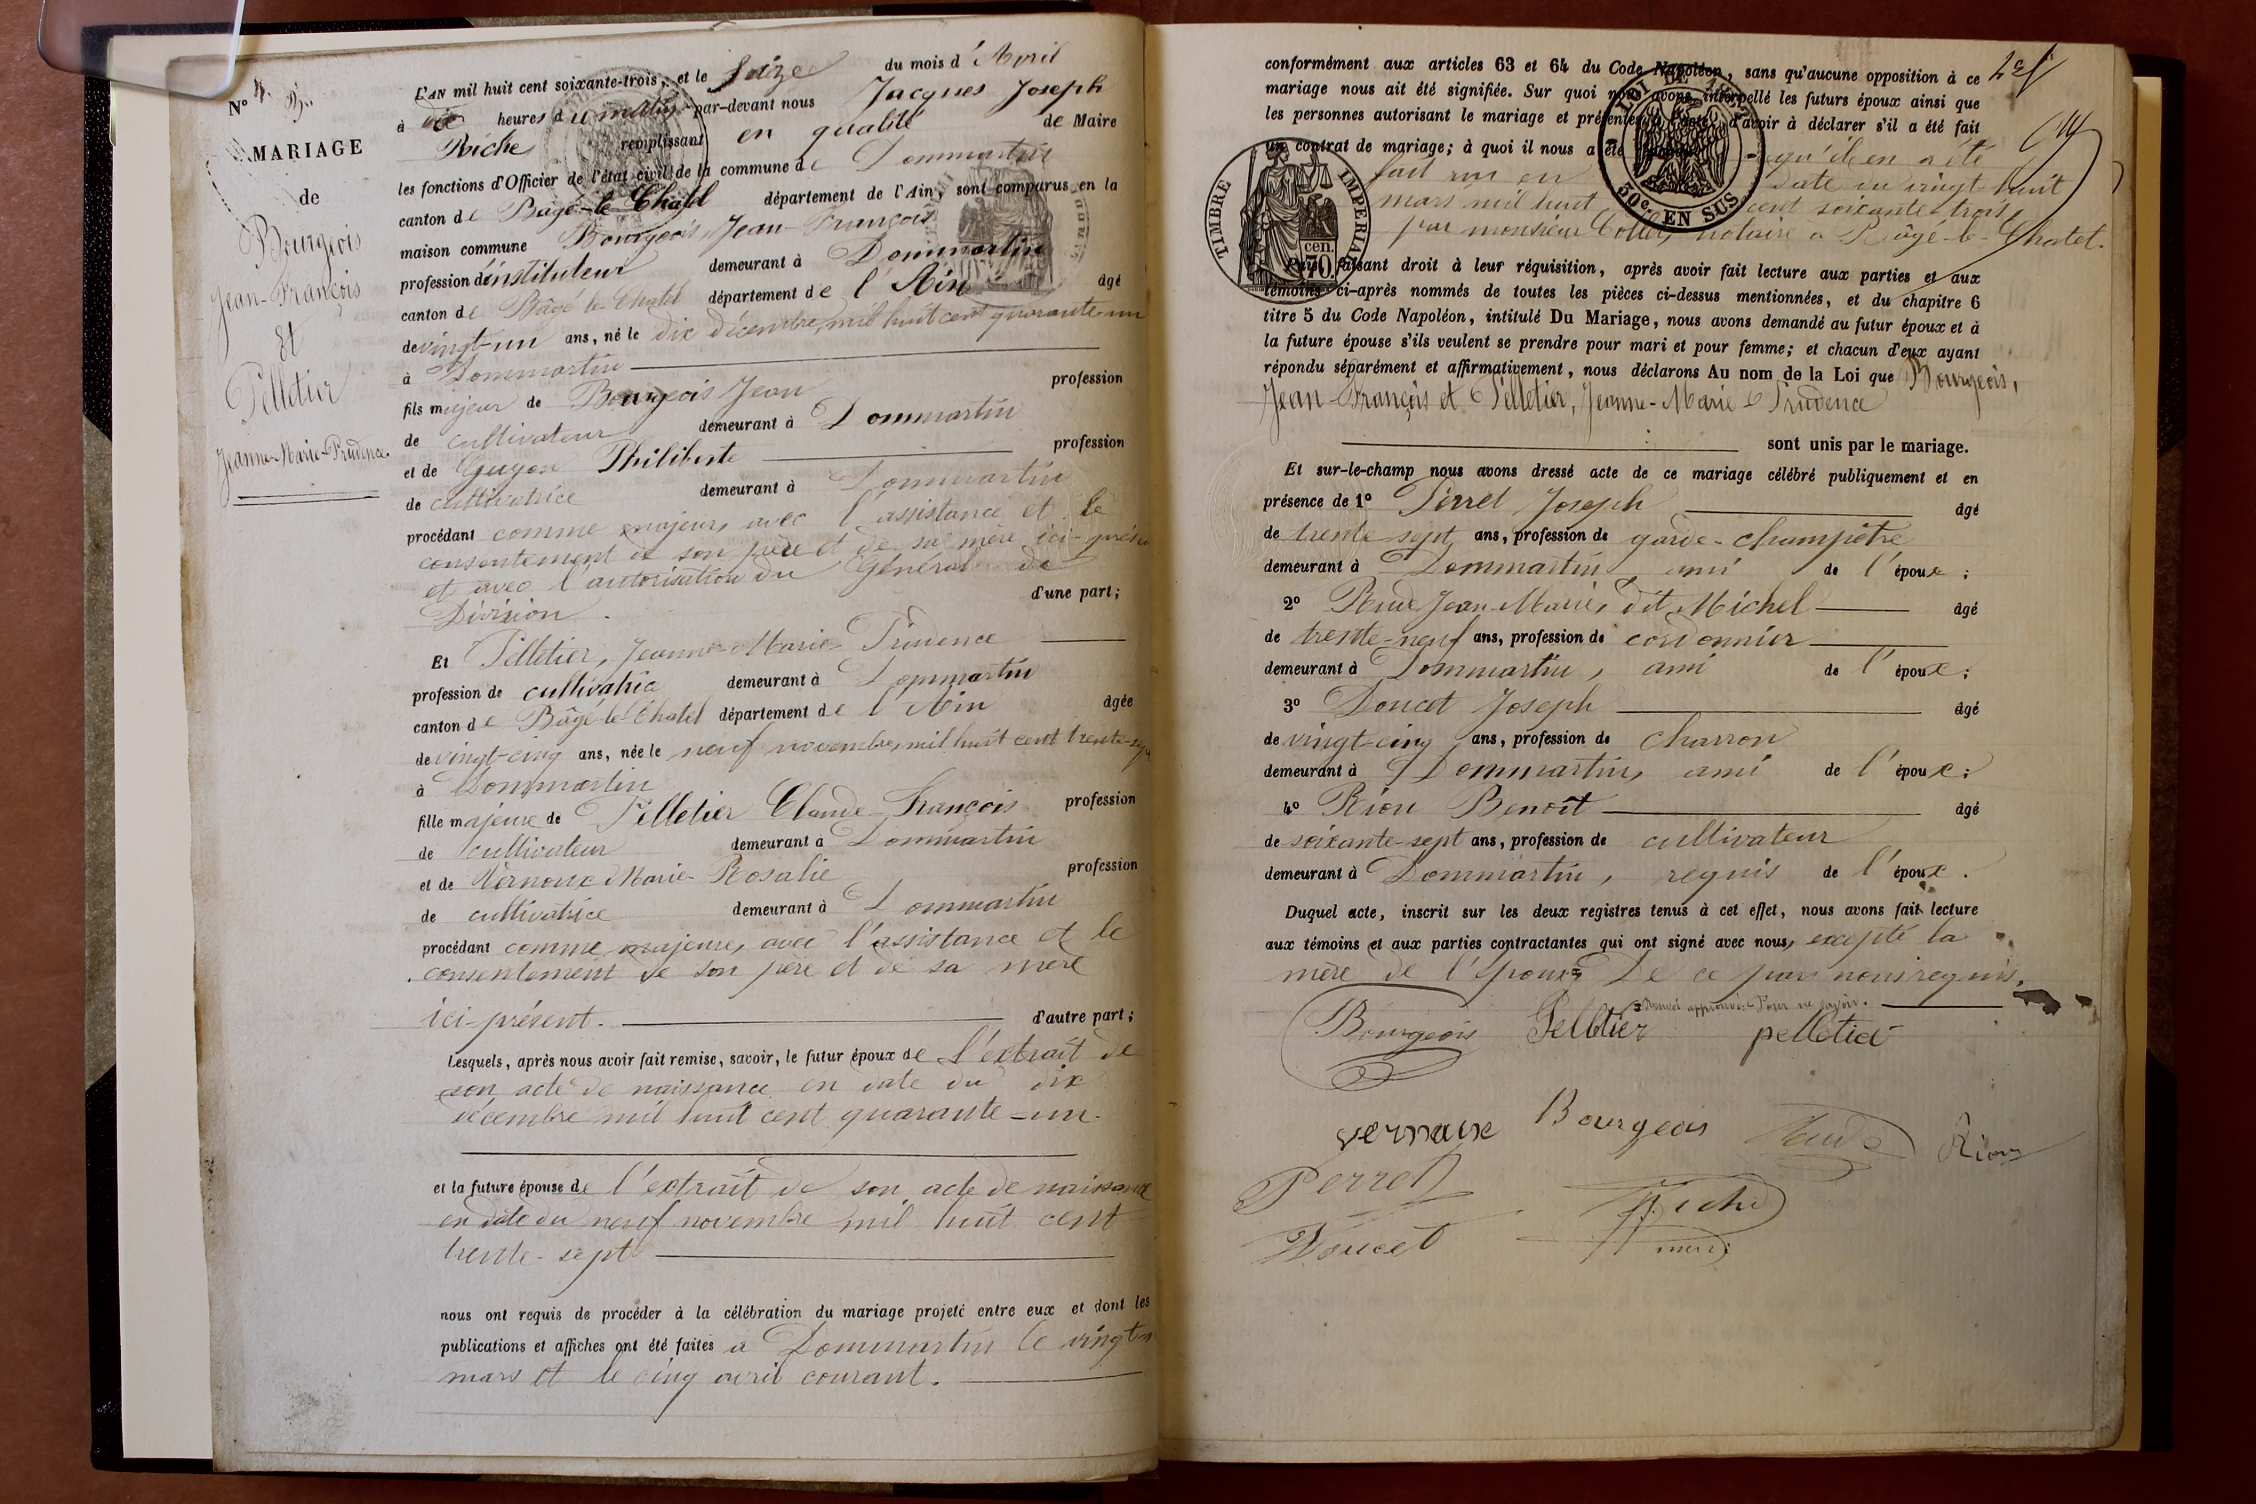 N° 4.
MARIAGE
de
Bourgeois
Jean-François
Et
Pelletier
Jeanne-Marie-Prudence.
L'AN mil huit cent soixante-trois, et le seize du mois d'Avril
à dix heures du matin par-devant nous Jacques Joseph
Riche remplissant en qualité de Maire
les fonctions d'Officier de l'état civil de la commune de Dommartin
canton de Bâgé-le-Chatel département de l'Ain, sont comparus en la
maison commune Bourgeois, Jean-François
profession d'instituteur demeurant à Dommartin
canton de Bâgé-le-Chatel département de l'Ain âgé
de vingt-un ans, né le dix décembre, mil huit cent quarante-un
à Dommartin
fils majeur de Bourgeois Jean profession
de cultivateur demeurant à Dommartin
et de Guyon Philiberte profession
de cultivatrice demeurant à Dommartin
procédant comme majeur, avec l'assistance et le
consentement de son père et de sa mère ici-prés
et avec l'autorisation du Général de
Division. d'une part;
Et Pelletier, Jeanne-Marie-Prudence
profession de cultivatrice demeurant à Dommartin
canton de Bâgé-le-Chatel département de l'Ain âgée
de vingt-cinq ans, née le neuf novembre, mil huit cent trente-sept
à Dommartin
fille majeure de Pelletier Claude-François profession
de cultivateur demeurant à Dommartin
et de Vernoux Marie-Rosalie profession
de cultivatrice demeurant à Dommartin
procédant comme majeure, avec l'assistance et le
consentement de son père et de sa mère
ici-présent. d'autre part;
Lesquels, après nous avoir fait remise, savoir, le futur époux de l'extrait de
son acte de naissance en date du dix
décembre mil huit cent quarante-un.
et la future épouse de l'extrait de son acte de naissance
en date du neuf novembre mil huit cent
trente-sept
nous ont requis de procéder à la célébration du mariage projeté entre eux et dont les
publications et affiches ont été faites à Dommartin le vingt
mars et le cinq avril courant.
conformément aux articles 63 et 64 du Code Napoléon, sans qu'aucune opposition à ce
mariage nous ait été signifiée. Sur quoi nous avons interpellé les futurs époux ainsi que
les personnes autorisant le mariage et présentes à l'acte, d'avoir à déclarer s'il a été fait
un contrat de mariage; à quoi il nous a été répondu qu'il en a été
fait un en date du vingt-huit
mars mil huit cent soixante-trois,
par monsieur notaire à Bâgé-le-Chatel.
TIMBRE IMPERIAL
70 cen.
LOI DE
50c. EN SUS
Puis, faisant droit à leur réquisition, après avoir fait lecture aux parties et aux
témoins ci-après nommés de toutes les pièces ci-dessus mentionnées, et du chapitre 6
titre 5 du Code Napoléon, intitulé Du Mariage, nous avons demandé au futur époux et à
la future épouse s'ils veulent se prendre pour mari et pour femme; et chacun d'eux ayant
répondu séparément et affirmativement, nous déclarons Au nom de la Loi que Bourgeois,
Jean-François et Pelletier, Jeanne-Marie-Prudence
sont unis par le mariage.
Et sur-le-champ nous avons dressé acte de ce mariage célébré publiquement et en
présence de 1° Perret Joseph âgé
de trente sept ans, profession de garde-champêtre
demeurant à Dommartin ami de l'époux;
2° Rude Jean-Marie, dit Michel âgé
de trente-neuf ans, profession de cordonnier
demeurant à Dommartin, ami de l'époux;
3° Doucet Joseph âgé
de vingt-cinq ans, profession de charron
demeurant à Dommartin, ami de l'époux;
4° Rion Benoît âgé
de soixante-sept ans, profession de cultivateur
demeurant à Dommartin, requis de l'époux.
Duquel acte, inscrit sur les deux registres tenus à cet effet, nous avons fait lecture
aux témoins et aux parties contractantes qui ont signé avec nous, excepté la
mère de l'époux De ce par nous requis.
Renvoi approuvé: Pour ne savoir.
Bourgeois Pelletier pelletier
vernoux Bourgeois Rude Rion
Perret Riche
Doucet maire